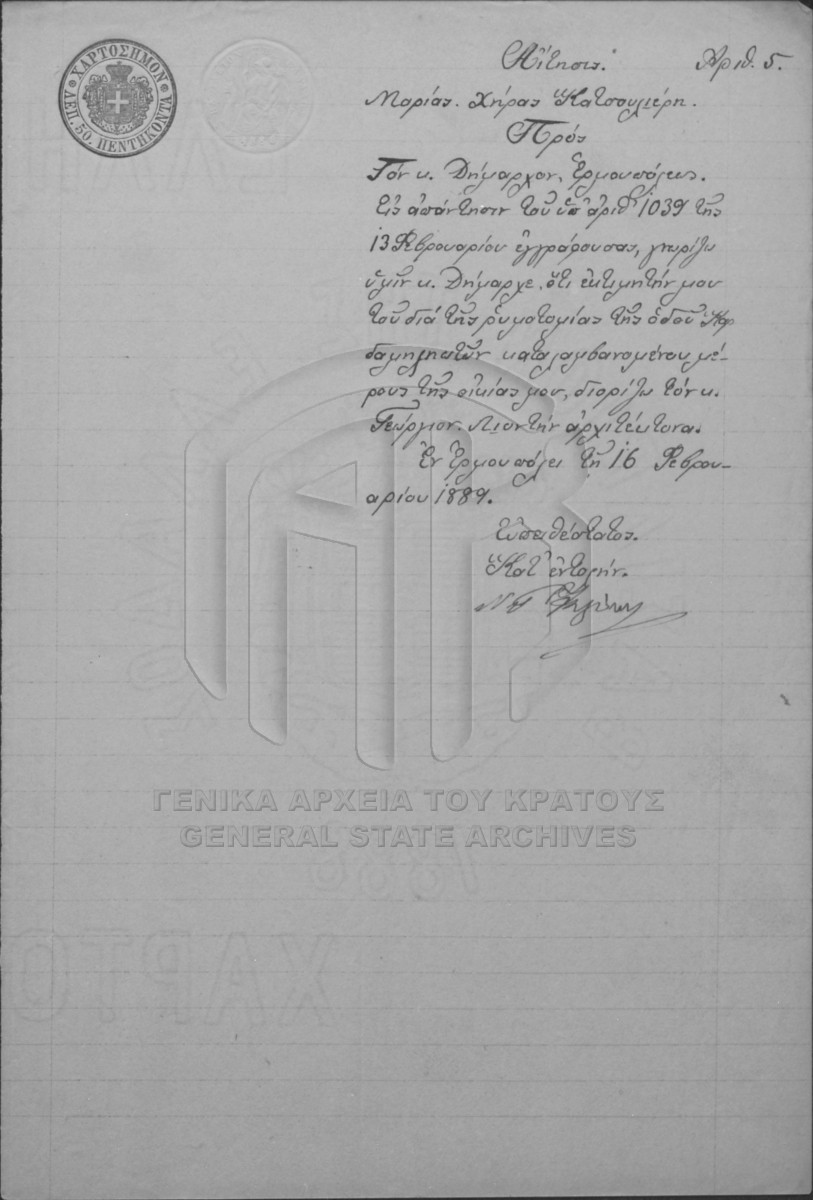 ΧΑΡΤΟΣΗΜΟΝ
ΛΕΠ. 50. ΠΕΝΤΗΚΟΝΤΑ
Αἴτησις. Ἀριθ. 5.
Μαρίας. Χήρας Κατσουλιέρη.
Πρός
Τόν κ. Δήμαρχον, Ἑρμουπόλεως.
Εἰς ἀπάντησιν τοῦ ὑπ' ἀριθ. 1039 τῆς
13 Φεβρουαρίου ἐγγράφου σας, γνωρίζω
ὑμῖν κ. Δήμαρχε, ὅτι ἐκτιμητήν μου
τοῦ διά τῆς ρυμοτομίας τῆς ὁδοῦ
καταλαμβανομένου μέ-
ρους τῆς οἰκίας μου, διορίζω τόν κ.
Γεώργιον ἀρχιτέκτονα.
Ἐν Ἑρμουπόλει τῇ 16 Φεβρου-
αρίου 1889.
Εὐπειθέστατος.
Κατ' ἐντολήν.
ΓΕΝΙΚΑ ΑΡΧΕΙΑ ΤΟΥ ΚΡΑΤΟΥΣ
GENERAL STATE ARCHIVES
ΧΑΡΤΟ